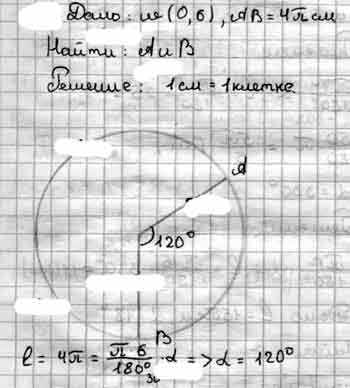 Дано: w (0,6), AB = 4π см
Найти: A и B
Решение: 1 см = 1 клетке
A
120°
B
l = 4π = π 6 / 180° · α => α = 120°